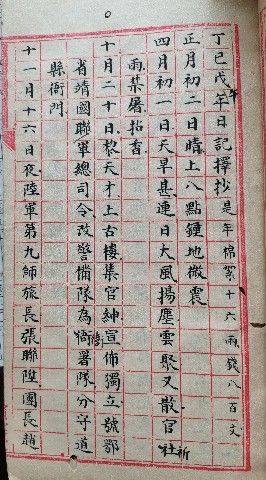 丁巳戊午年日記擇抄 是年棉絮十六兩錢八百文
正月初三日晴上八點鐘地微震
四月初一日天旱甚連日大風揚塵雲聚又散官社祈
雨禁屠拈香
十月二十日黎天才上古樓集官紳宣佈獨立號鄂
省靖國聯軍總司令改警備隊為衛署隊分守道
縣衙門
十一月十六日夜陸軍第九師旅長張聯陞團長趙